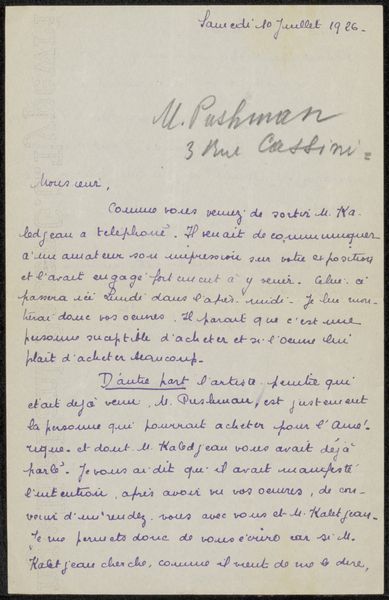 Samedi 10 Juillet 1926.
M. Pushman
3 Rue Cassini =
Monsieur,
Comme vous veniez de sortir M. Ka-
ledjean a telephoné. Il venait de communiquer
à un amateur son impression sur votre exposition
et l'avait engagé fortement à y venir. Celui-ci
passera ici Lundi dans l'après-midi. Je lui mon-
trerai donc vos oeuvres. Il parait que c'est une
personne suceptible d'acheter et si l'oeuvre lui
plait d'acheter beaucoup.
D'autre part l'artiste peintre qui
était déjà venu, M. Pushman, est justement
la personne qui pourrait acheter pour l'Amé-
rique et dont M. Kaledjean vous avait déjà
parlé. Je vous ai dit qu'il avait manifesté
l'intention, après avoir vu vos oeuvres, de con-
venir d'un rendez-vous avec vous et M. Kaledjean.
Je me permets donc de vous écrire car si M.
Kaledjean cherche, comme il vient de me le dire,